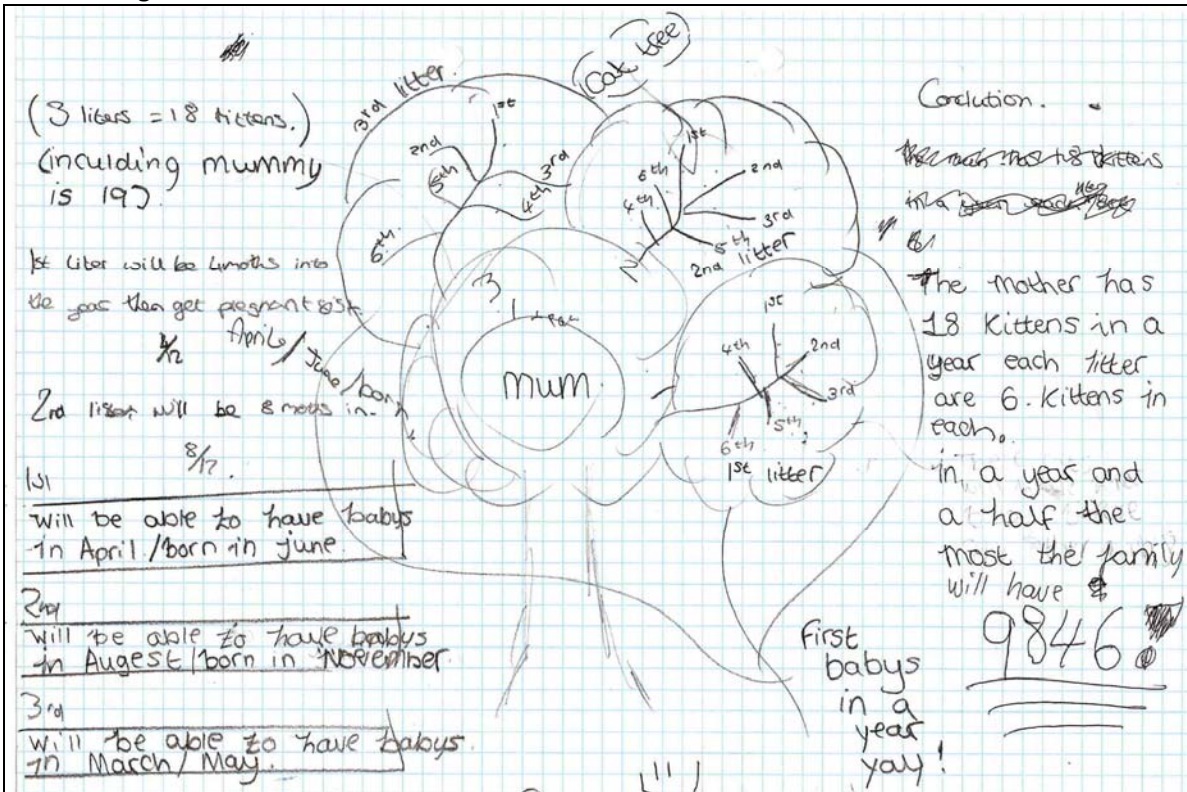 (3 liters = 18 kittens.)
(inculding mummy
is 19).
1st liter will be 4moths into
the year then get pregnant
4/12
April/June/born
2nd liter will be 8 moths in.
8/12.
1st
will be able to have babys
in April/born in june.
2nd
will be able to have babys
in Augest/born in November.
3rd
will be able to have babys.
in March/May.
Cat tree
3rd litter.
1st
2nd
3rd
4th
5th
6th
1st
2nd
3rd
4th
5th
6th
2nd litter
2
3
mum
1st
2nd
3rd
4th
5th
6th
1st litter
First
babys
in a
year
yay!
Conclution.
The mother has
18 kittens in a
year each litter
are 6. kittens in
each.
in a year and
a half the
most the family
will have
9846!